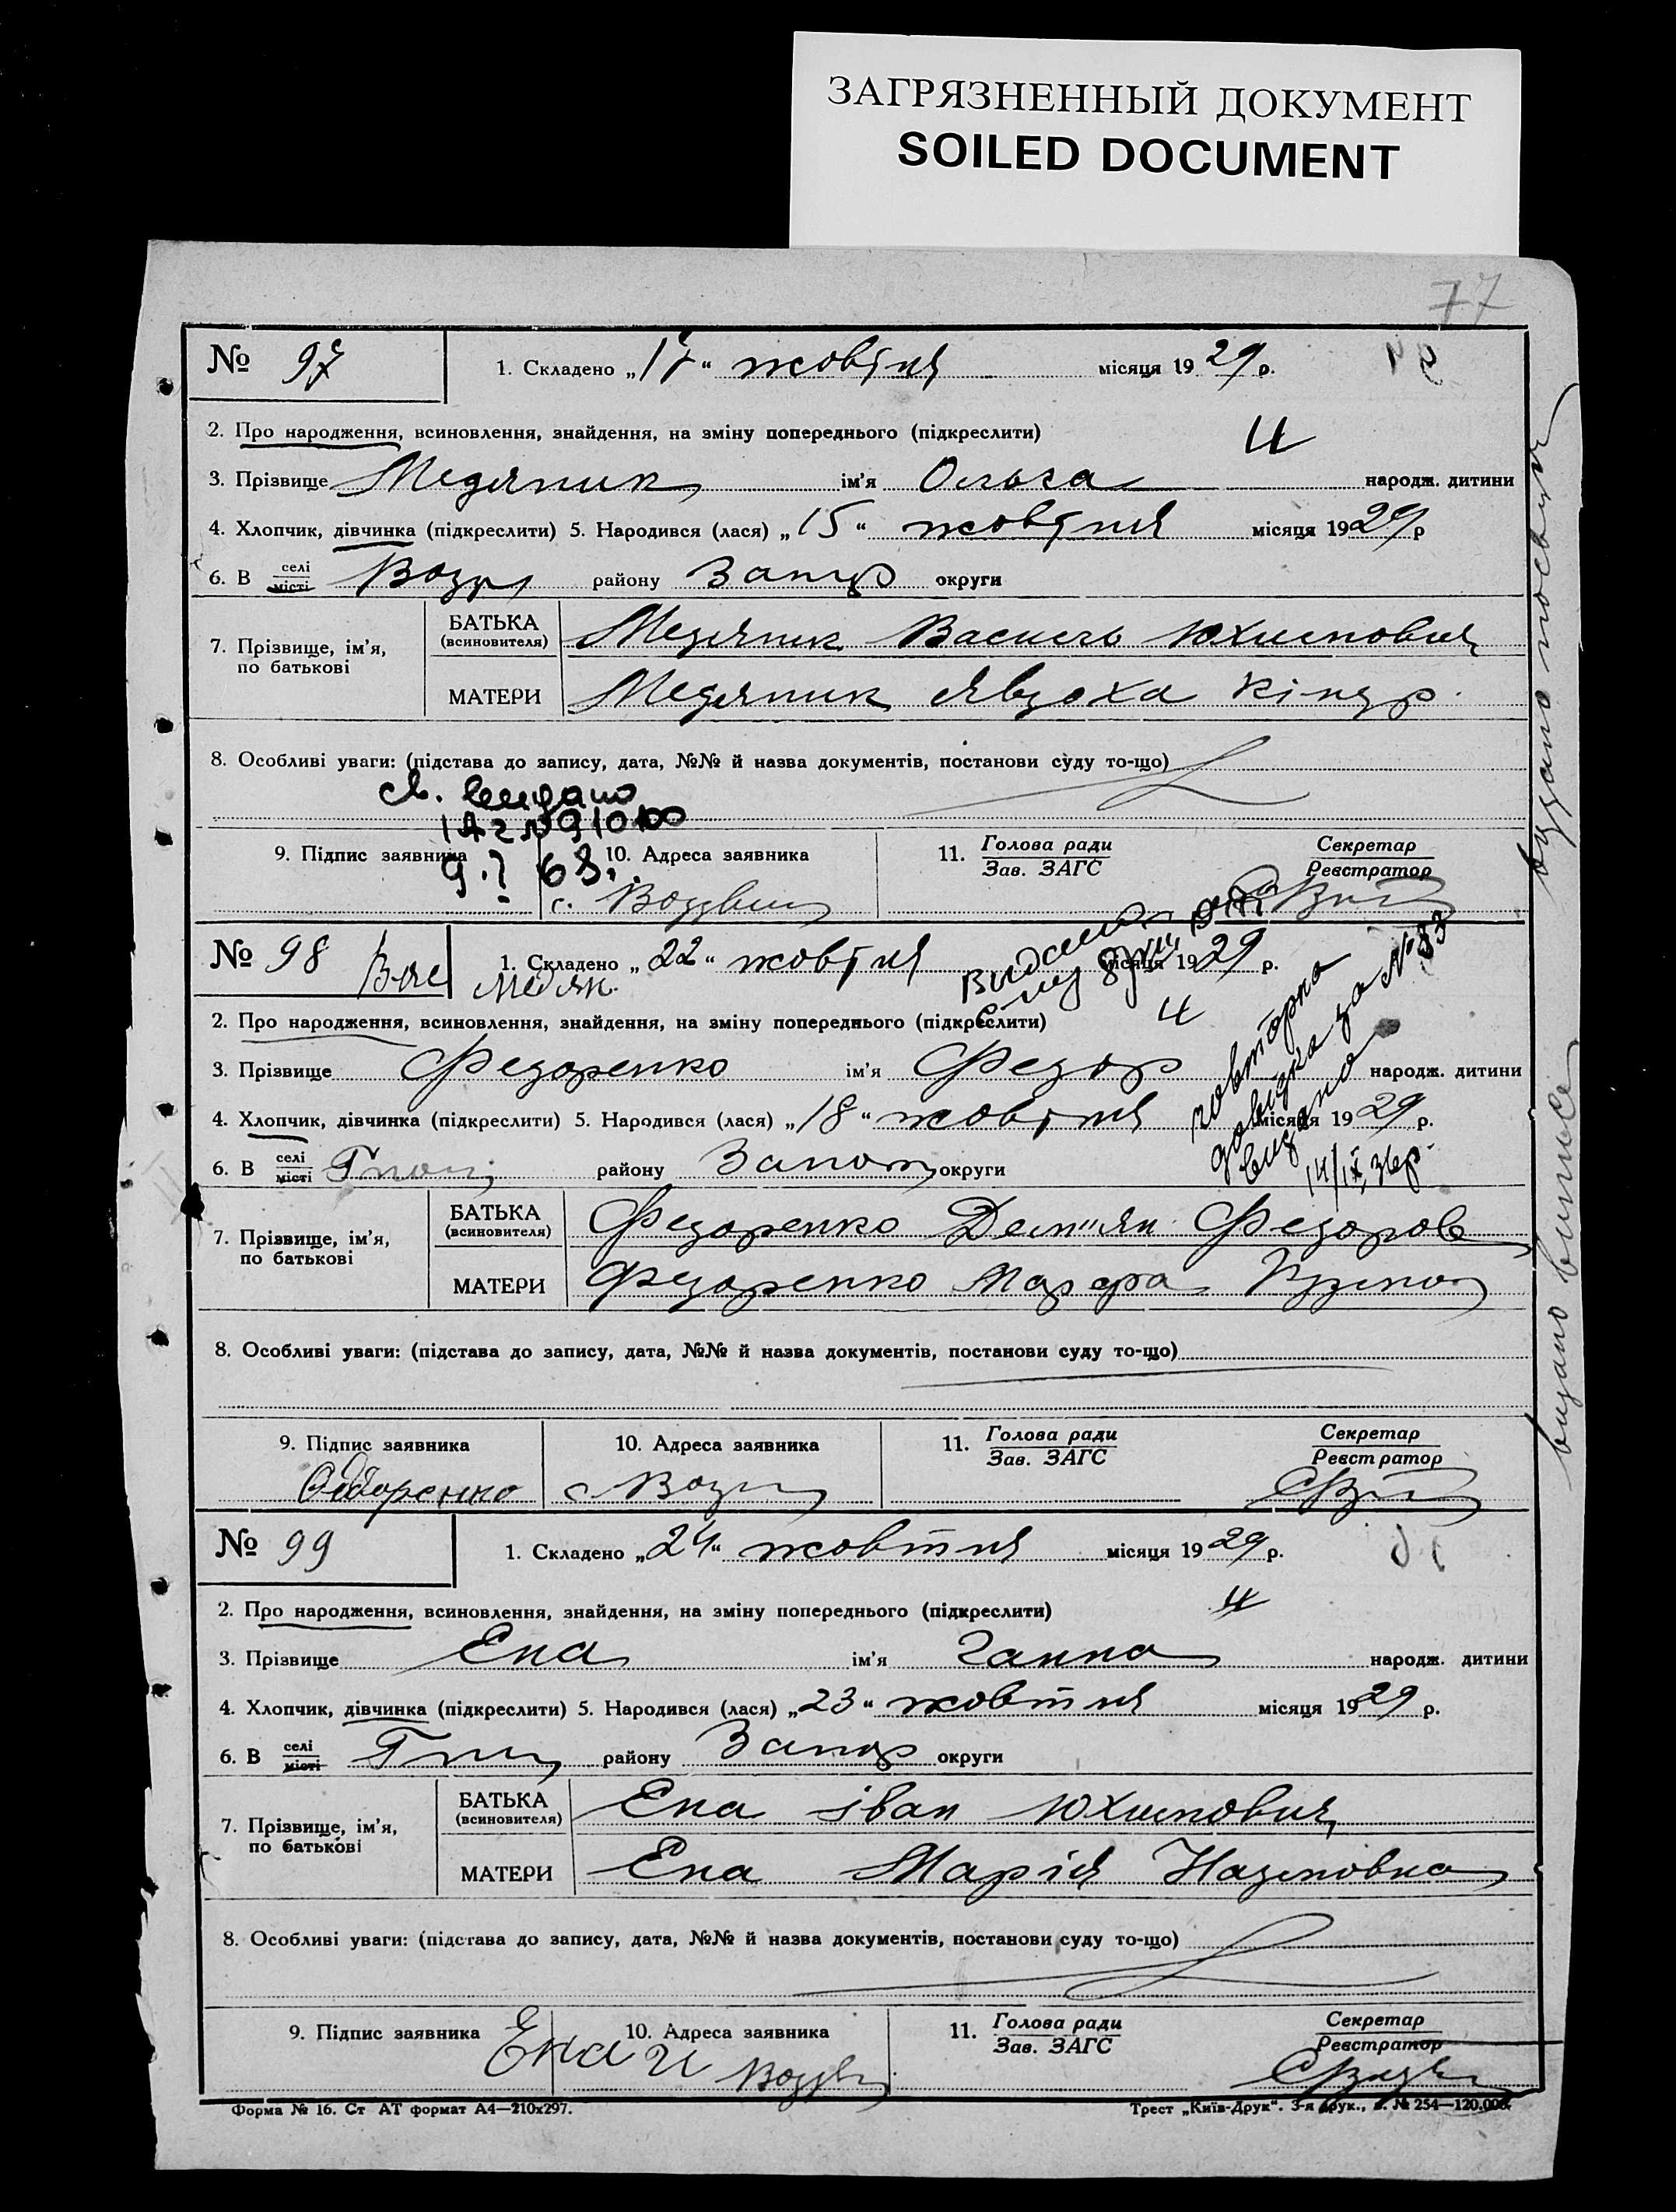 ЗАГРЯЗНЕННЫЙ ДОКУМЕНТ
SOILED DOCUMENT
77
№ 97 1. Складено „17“ жовтня місяця 1929 р.
2. Про народження, всиновлення, знайдення, на зміну попереднього (підкреслити)
3. Прізвище Медяник ім'я Ольга народж. дитини
4. Хлопчик, дівчинка (підкреслити) 5. Народився (лася) „15“ жовтня місяця 1929 р
6. В селі місті району Запор округи
7. Прізвище, ім'я, по батькові
БАТЬКА (всиновителя) Медяник Василь Юхимович
МАТЕРИ Медяник Явдоха Кіндр.
8. Особливі уваги: (підстава до запису, дата, №№ й назва документів, постанови суду то-що)
св. видано
9. Підпис заявника 10. Адреса заявника 11. Голова ради Зав. ЗАГС Секретар Реєстратор
с. Воздвиж
№ 98 1. Складено „22“ жовтня місяця 1929 р.
2. Про народження, всиновлення, знайдення, на зміну попереднього (підкреслити)
3. Прізвище Федоренко ім'я Федор народж. дитини
4. Хлопчик, дівчинка (підкреслити) 5. Народився (лася) „18“ жовтня місяця 1929 р.
6. В селі місті району округи
повторна
довідка за № 33
видано
7. Прізвище, ім'я, по батькові
БАТЬКА (всиновителя) Федоренко Дем"ян Федоров
МАТЕРИ Федоренко Марфа
8. Особливі уваги: (підстава до запису, дата, №№ й назва документів, постанови суду то-що)
9. Підпис заявника 10. Адреса заявника 11. Голова ради Зав. ЗАГС Секретар Реєстратор
Федоренко
№ 99 1. Складено „24“ жовтня місяця 1929 р.
2. Про народження, всиновлення, знайдення, на зміну попереднього (підкреслити)
3. Прізвище Ена ім'я Ганна народж. дитини
4. Хлопчик, дівчинка (підкреслити) 5. Народився (лася) „23“ жовтня місяця 1929 р.
6. В селі місті району Запор округи
7. Прізвище, ім'я, по батькові
БАТЬКА (всиновителя) Ена Іван Юхимович
МАТЕРИ Ена Марія Наумовна
8. Особливі уваги: (підстава до запису, дата, №№ й назва документів, постанови суду то-що)
9. Підпис заявника 10. Адреса заявника 11. Голова ради Зав. ЗАГС Секретар Реєстратор
Ена И
Форма № 16. Ст АТ формат А4—210х297. Трест „Київ-Друк“. 3-я друк., з. № 254—120.000.
видано посвідч
видано виписе